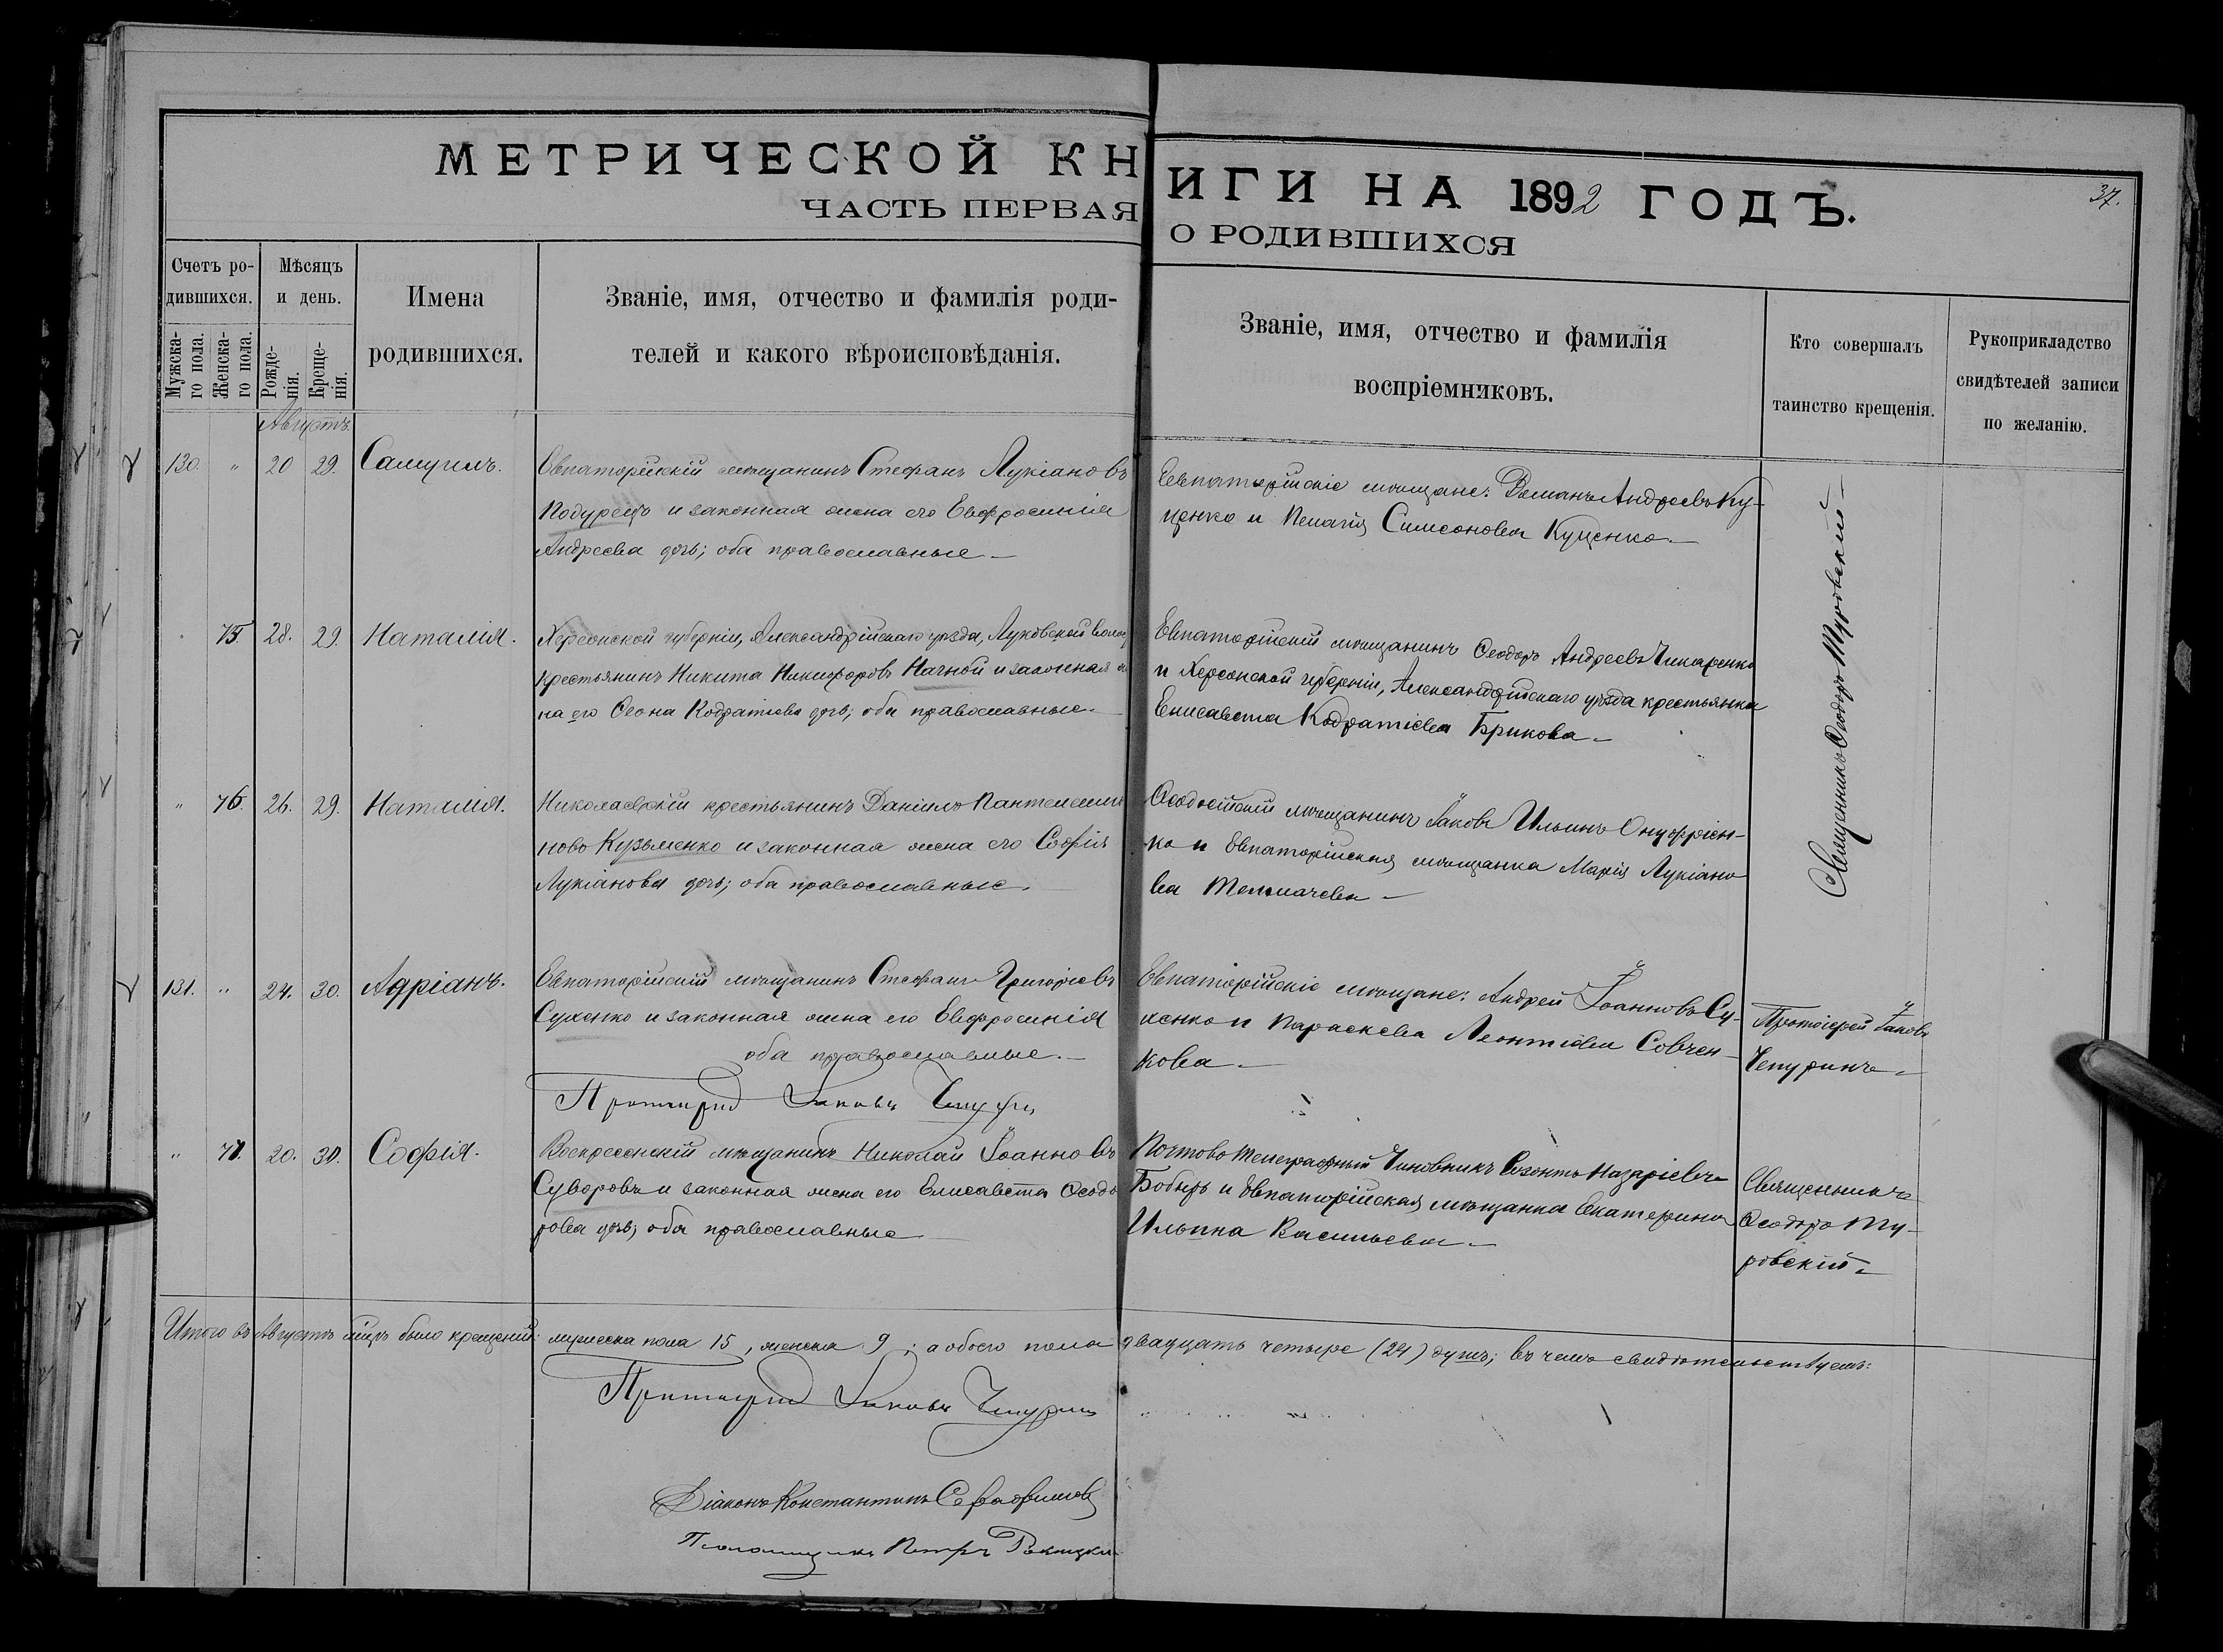 МЕТРИЧЕСКОЙ КНИГИ НА 1892 ГОДЪ.
37.
ЧАСТЬ ПЕРВАЯ О РОДИВШИХСЯ
Счетъ ро-
дившихся.
Мужска-
го пола.
Женска-
го пола.
Мѣсяцъ
и день.
Рожде-
нія.
Креще-
нія.
Имена
родившихся.
Званіе, имя, отчество и фамилія роди-
телей и какого вѣроисповѣданія.
Званіе, имя, отчество и фамилія
воспріемниковъ.
Кто совершалъ
таинство крещенія.
Рукоприкладство
свидѣтелей записи
по желанію.
Августъ
130. " 20 29. Самуилъ.
Евпаторійскій мѣщанинъ Стефанъ Лукіановъ
Подурецъ и законная жена его Евфросинія
Андреева дочь; оба православные
Евпаторійскіе мѣщане: Романъ Андреевъ Ку-
ценко и Пелагія Симеонова Куценко.
Священникъ Ѳеодоръ Туровскій
75 28. 29. Наталія.
Херсонской губерніи, Александрійскаго уѣзда,
крестьянинъ Никита Никифоровъ и законная же
на его Кодратіева дочь; оба православные.
Евпаторійскій мѣщанинъ Ѳеодоръ Андреевъ Чикаренко
и Херсонской губерніи, Александрійскаго уѣзда крестьянка
Елисавета Кодратіева Брикова
" 76. 26. 29. Наталія.
Николаевскій крестьянинъ Даніилъ Пантелеимо
новъ Кузьменко и законная жена его Софія
Лукіанова дочь; оба православные.
Ѳеодосійскій мѣщанинъ Іаковъ Ильинъ Онуфріен-
ко и Евпаторійская мѣщанка Марія Лукіано
ва Толмачева
131. " 24. 30. Адріанъ.
Евпаторійскій мѣщанинъ Стефанъ Григоріевъ
Сухенко и законная жена его Евфросинія
оба православные.
Протоіерей Іаковъ Чепуринъ
Евпаторійскіе мѣщане: Андрей Іоанновъ Су-
хенко и Параскева Леонтіева Совчен-
кова
Протоіерей Іаковъ
Чепуринъ
" 77. 20. 30. Софія.
Воскресенскій мѣщанинъ Николай Іоанновъ
Суворовъ и законная жена его Елисавета Ѳеодо
рова дочь; оба православные
Почтово Телеграфный Чиновникъ Созонтъ Назаріевъ
Бобырь и Евпаторійская мѣщанка Екатерина
Ильина Васильева
Священникъ
Ѳеодоръ Ту-
ровскій
Итого въ Августѣ м͠цѣ было крещеній: мужеска пола 15, женска 9; а обоего пола двадцать четыре (24) душъ; въ чемъ свидѣтельствуемъ:
Протоіерей Іаковъ Чепуринъ
Діаконъ Константинъ Серафимовъ
Псаломщикъ Петръ